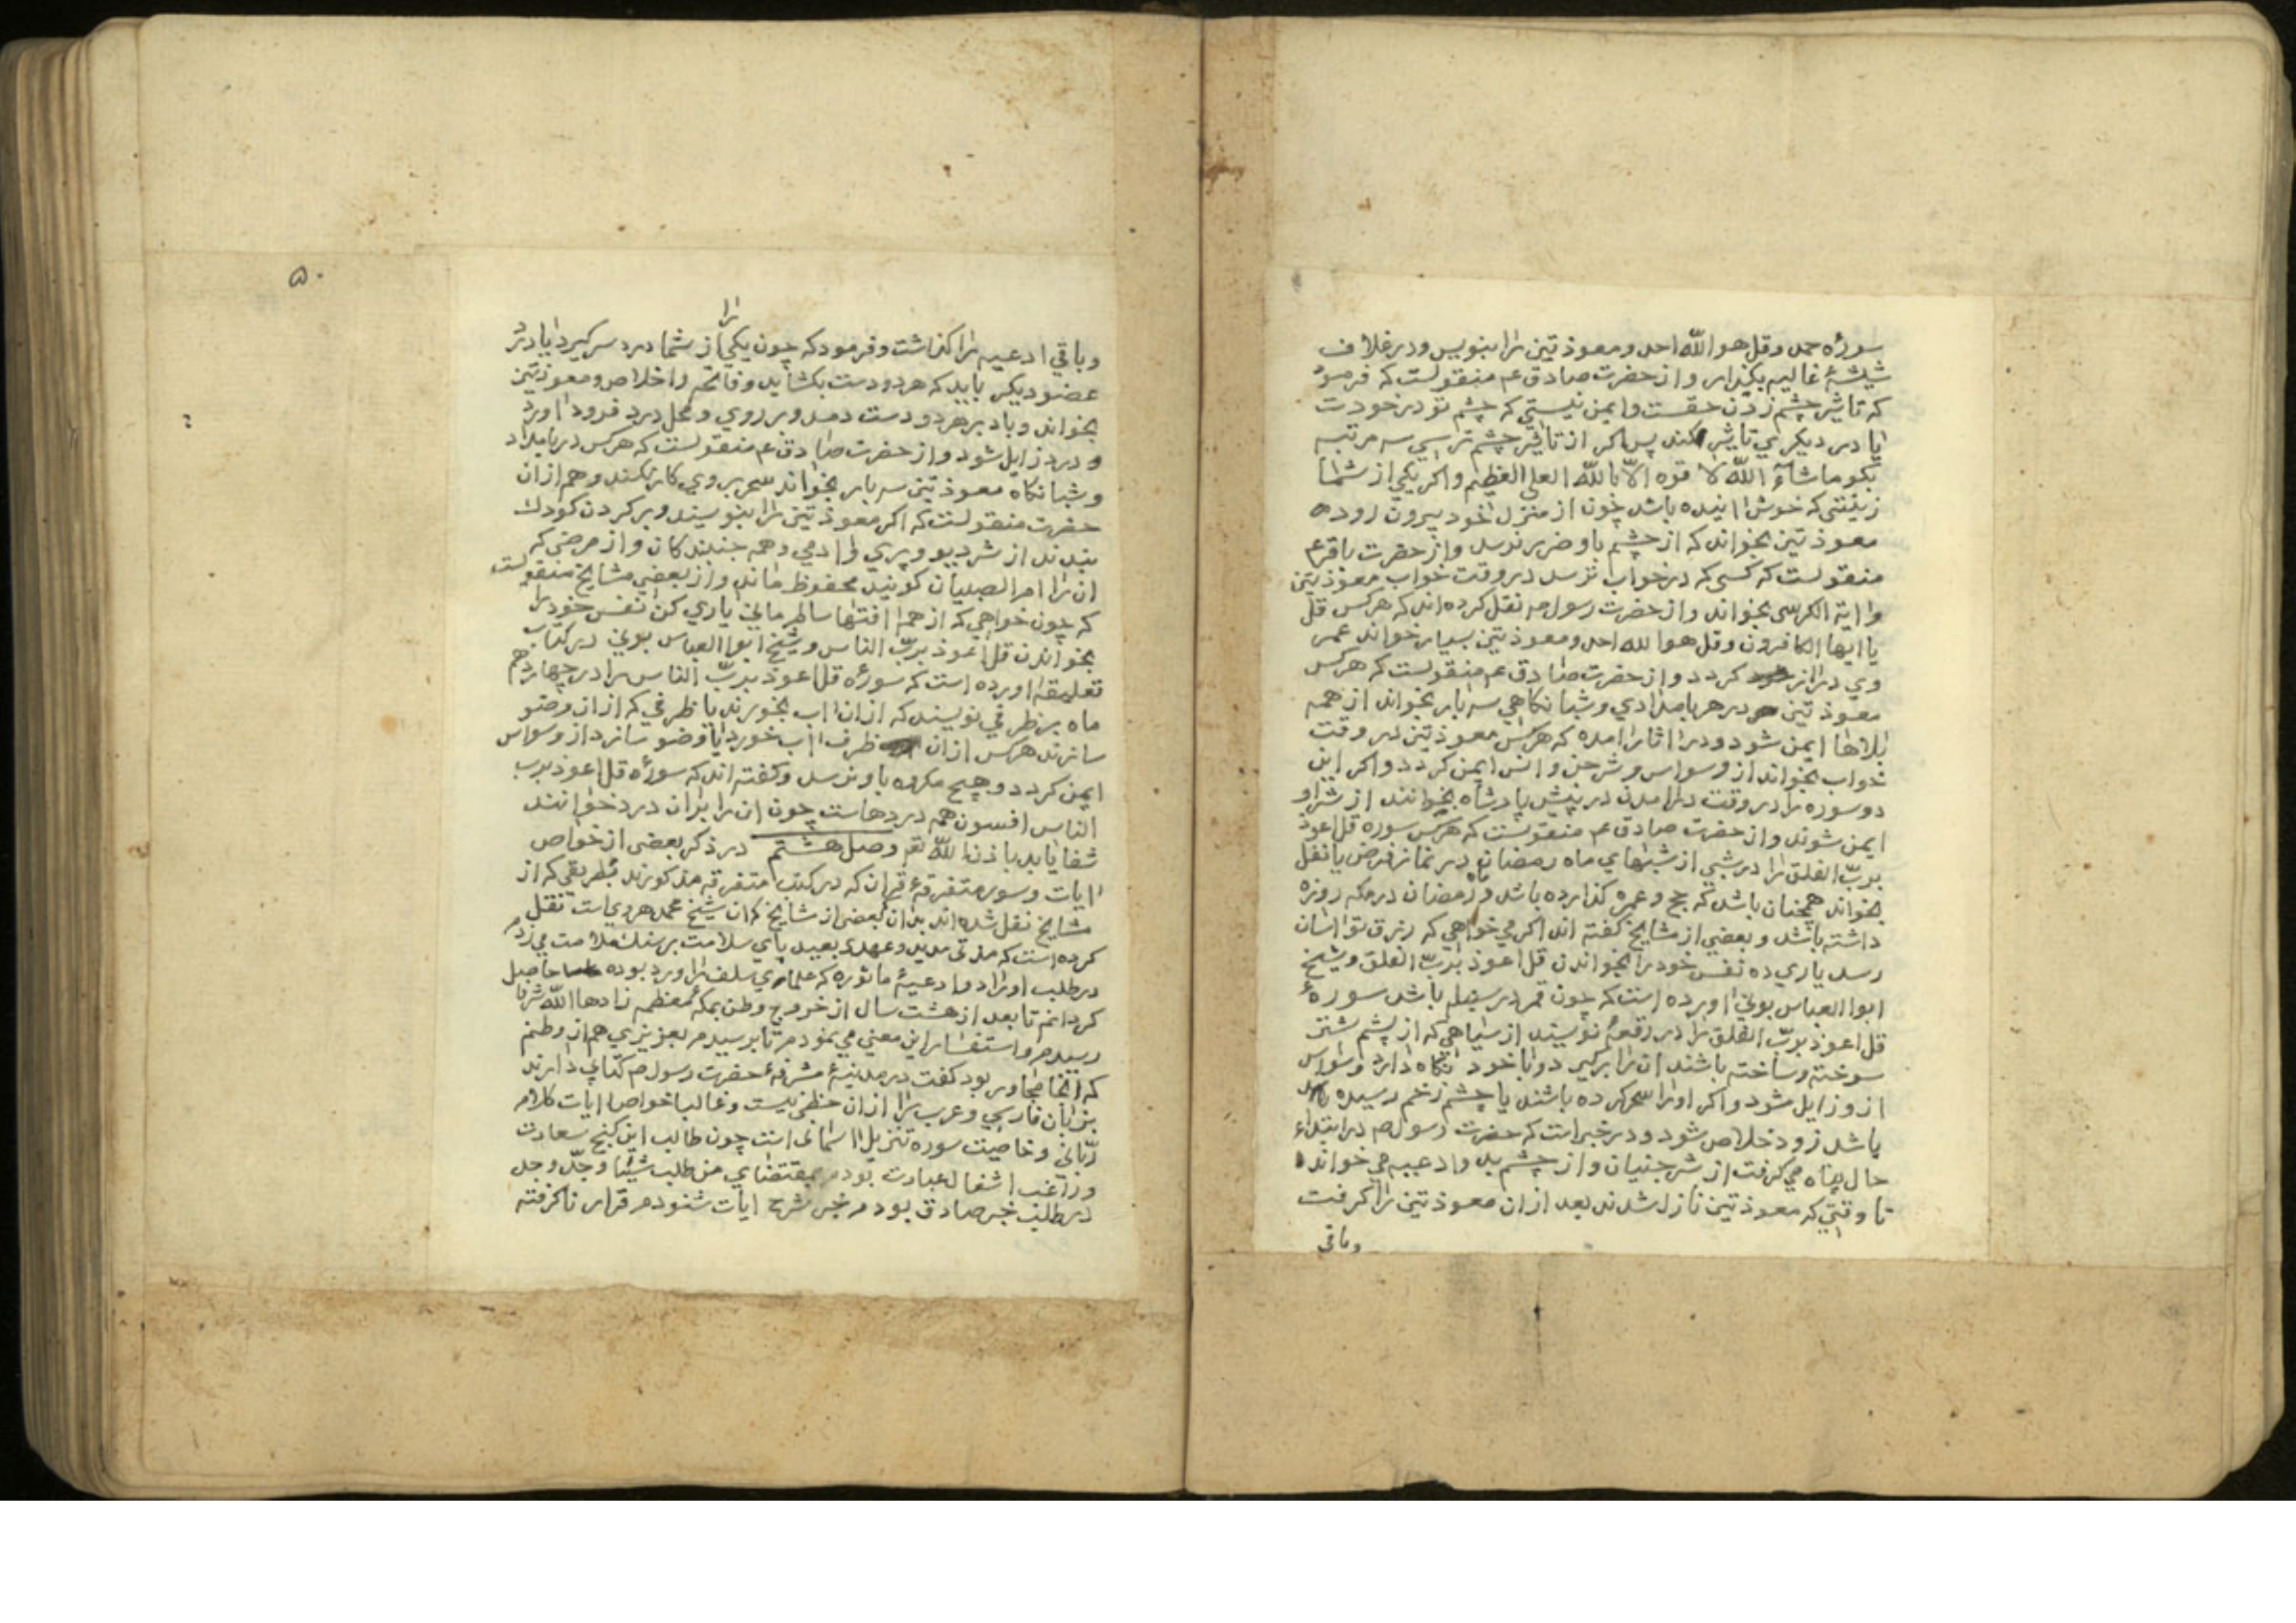 سورهٔ حمد وقل هو الله احد ومعوذتین را بنویس ودر غلاف
شیشهٔ غالیه بکذار واز حضرت صادق عم منقولست که فرمود
که تاثیر چشم زدن حقست وایمن نیستی که چشم تو در خودت
یا در دیکری تاثیر کند پس اکر از تاثیر چشم ترسی سه مرتبه
بکو ماشاء الله لا قوه الا بالله العلی العظیم واکر یکی از شما
زینتی که خوش ایده باشد چون از منزل خود بیرون رود
معوذتین بخواند که از چشم باو ضرر نرسد واز حضرت باقر عم
منقولست که کسی که در خواب ترسد در وقت خواب معوذتین
وایة الکرسی بخواند واز حضرت رسول صم نقل کرده اند که هرکس قل
یا ایها الکافرون وقل هو الله احد ومعوذتین بسیار خواند عمر
وی دراز کردد واز حضرت صادق عم منقولست که هرکس
معوذتین در هر بامدادی وشبانکاهی سه بار بخواند از همه
بلاها ایمن شود ودر اثار امده که هرکس معوذتین در وقت
خواب بخواند از وسواس وشر جن وانس ایمن کردد واکر این
دو سوره را در وقت درامدن در پیش پادشاه بخوانند از شر او
ایمن شوند واز حضرت صادق عم منقولست که هرکس سوره قل اعوذ
برب الفلق را در شبی از شبهای ماه رمضان در نماز فرض یا نفل
بخواند همچنان باشد که حج وعمره کذارده باشد وماه رمضان در مکه روزه
داشته باشد وبعضی از مشایخ کفته اند اکر می خواهی که رزق تو اسان
رسد یاری ده نفس خود را بخواندن قل اعوذ برب الفلق وشیخ
ابوالعباس بونی اورده است که چون قمر در سنبله باشد سورهٔ
قل اعوذ برب الفلق را در رقعهٔ نویسند از سیاهی که از پشم شتر
سوخته وساخته باشند ان را برکیرد وبا خود نکاه دارد وسواس
ازو زایل شود واکر اورا سحر کرده باشند یا چشم زخم رسیده
باشد زود خلاص شود ودر خبر است که حضرت رسول صم در ابتداء
حال پناه می کرفت از شر جنیان واز چشم بد وادعیه می خواند
تا وقتی که معوذتین نازل شدند بعد ازان معوذتین را کرفت
وباقی
۵۰
وباقی ادعیه را کذاشت وفرمود که چون یکی را از شما درد سر کیرد یا درد
عضو دیکر باید که هر دو دست بکشاید وفاتحه واخلاص ومعوذتین
بخواند وباد بر هر دو دست دمد وبر روی ومحل درد فرود اورد
ودرد زایل شود واز حضرت صادق عم منقولست که هرکس در بامداد
وشبانکاه معوذتین سه بار بخواند سحر بروی کار نکند وهم ازان
حضرت منقولست که اکر معوذتین را بنویسند وبر کردن کودک
بندند از شر دیو وپری وادمی وهمه جنبندکان واز مرضی که
ان را ام الصبیان کویند محفوظ ماند واز بعضی مشایخ منقولست
که چون خواهی که از همه افتها سالم مانی یاری کن نفس خود را
بخواندن قل اعوذ برب الناس وشیخ ابوالعباس بونی در کتاب
تعلیقه اورده است که سورهٔ قل اعوذ برب الناس را در چهاردهم
ماه بر ظرفی نویسند که ازان اب بخورند یا ظرفی که ازان وضو
سازند هرکس ازان ظرف اب خورد یا وضو سازد از وسواس
ایمن کردد وهیچ مکروه باو نرسد وکفته اند که سورهٔ قل اعوذ برب
الناس افسون همه دردهاست چون ان را بران درد خوانند
شفا یابد باذن الله تعم وصل هشتم در ذکر بعضی از خواص
ایات وسور متفرقهٔ قران که در کتب متفرقه مذکورند بطریقی که از
مشایخ نقل شده اند بدان که بعضی از مشایخ که ان شیخ محمد هروی است نقل
کرده است که مدتی مدید وعهدی بعید پای سلامت بر سنک ملامت می زدم
در طلب اوراد وادعیهٔ ماثوره که علمای سلف را ورد بوده حاصل
کردانم تا بعد از هشت سال از خروج وطن بمکهٔ معظمه زادها الله شرفا
رسیدم واستفسار این معنی می نمودم تا برسیدم بعزیزی هم از وطنم
که انجا مجاور بود کفت در مدینهٔ مشرفهٔ حضرت رسول صم کتابی دارند
بزبان فارسی وعرب را ازان حظی نیست وغالبا خواص ایات کلام
ربانی وخاصیت سوره تنزیل اسمانی است چون طالب این کنج سعادت
وراغب اشغال عبادت بودم بمقتضای من طلب شیئا وجد وجد
در طلب خبر صادق بودم شرح ایات شنودم قرار ناکرفته